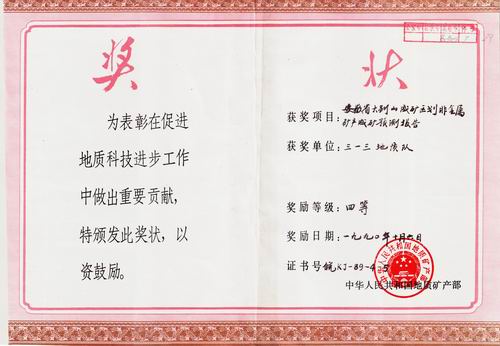 奖状
为表彰在促进
地质科技进步工作
中做出重要贡献，
特颁发此奖状，以
资鼓励。
获奖项目：安徽省大别山成矿区划非金属
矿产成矿预测报告
获奖单位：三一三地质队
奖励等级：四等
奖励日期：一九九〇年十月
证书号 皖KJ-89-4-5
中华人民共和国地质矿产部
中华人民共和国地质矿产部